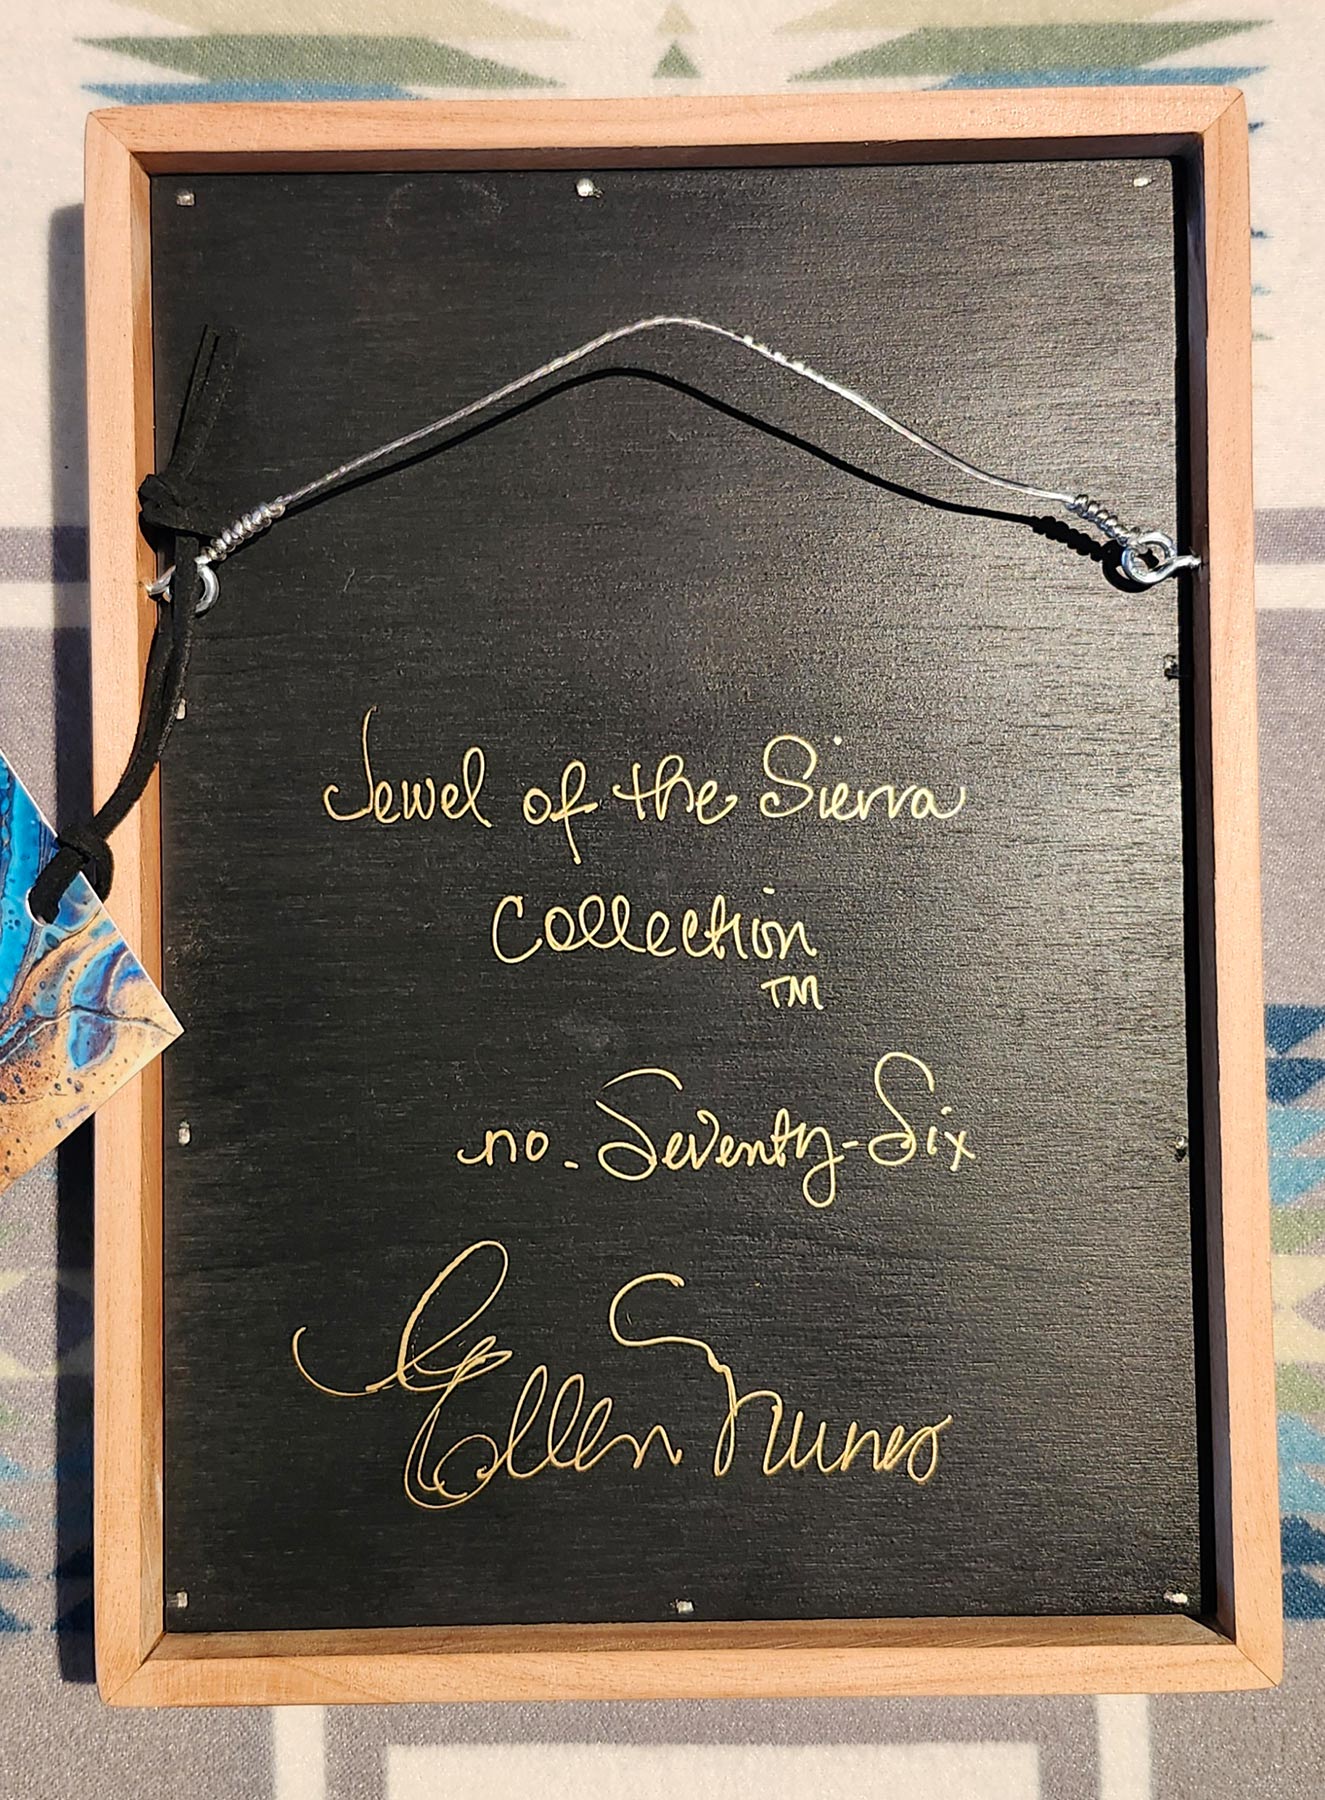 Jewel of the Sierra
Collection
TM
no. Seventy-Six
Ellen Nunes